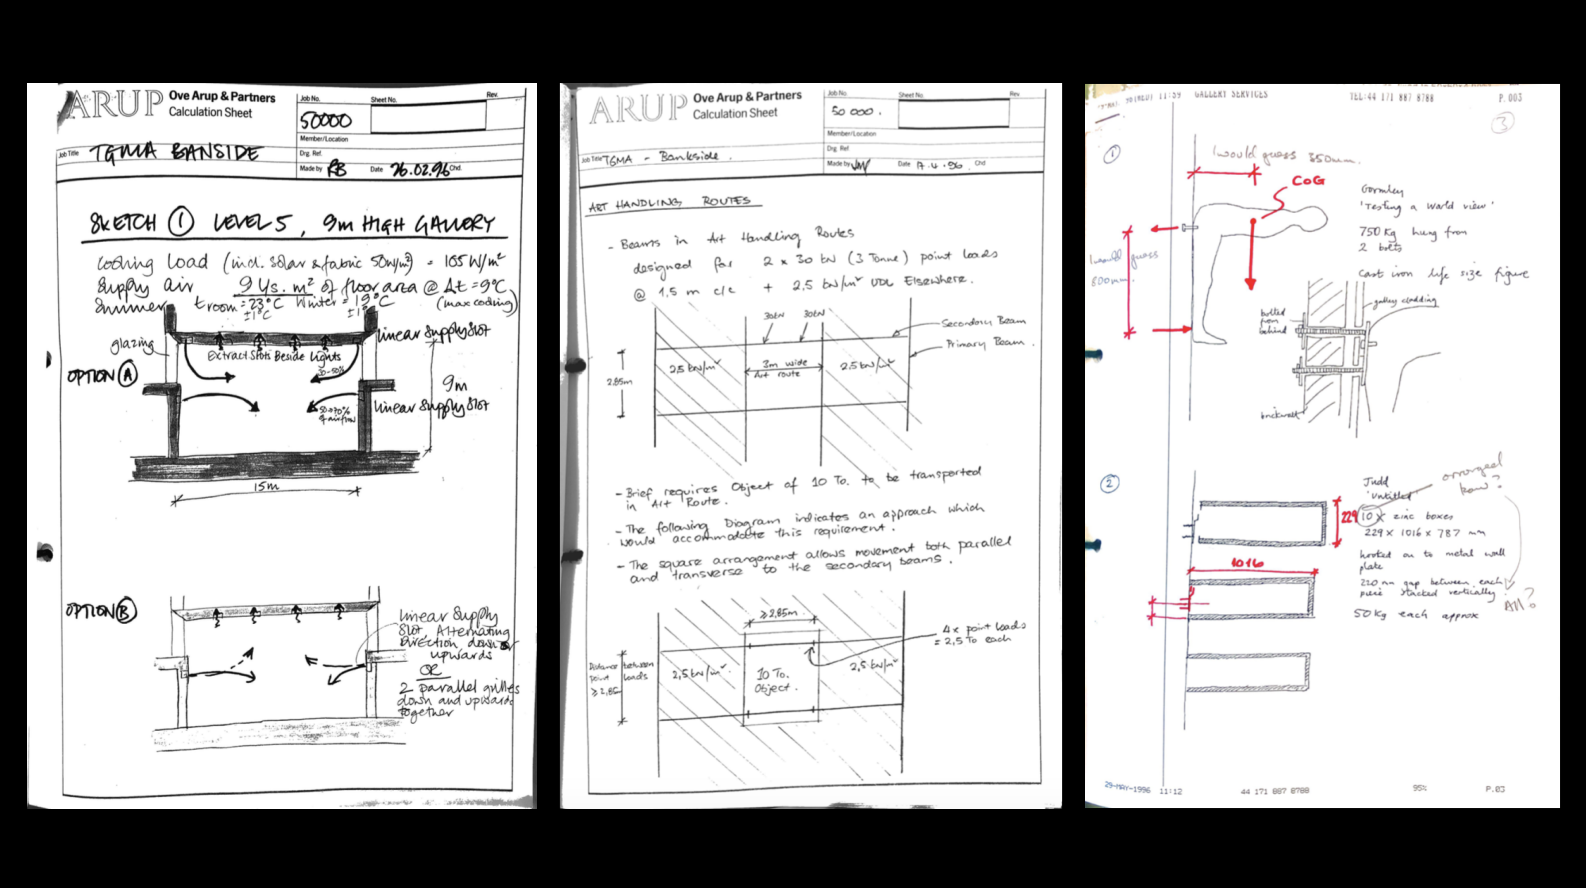 ARUP
Ove Arup & Partners
Calculation Sheet
Job No.
Sheet No.
Rev.
50000
Member/Location
Job Title
TGMA BANSIDE
Drg. Ref.
Made by RB
Date 26.02.96
Chd.
SKETCH ① LEVEL 5, 9m HIGH GALLERY
Cooling Load (incl. solar & fabric 50W/m²) = 165 W/m²
Supply air 9 l/s.m² of floor area @ Δt = 9°C
Summer troom = 23°C Winter = 19°C (max cooling)
±1°C ±1°C
Linear Supply Slot
glazing
Extract Slots Beside Lights
30-50%
OPTION A
9m
50-70%
of airflow
Linear Supply Slot
15m
OPTION B
Linear Supply
Slot, Alternating
Direction down or
upwards
OR
2 parallel grilles
down and upwards
together
ARUP
Ove Arup & Partners
Calculation Sheet
Job No.
Sheet No.
Rev.
50 000.
Member/Location
Job Title TGMA - Bankside.
Drg. Ref.
Made by
Date 17.4.96
Chd
ART HANDLING ROUTES
- Beams in Art Handling Routes
designed for 2 x 30 kN (3 Tonne) point loads
@ 1,5 m c/c + 2,5 kN/m² UDL Elsewhere.
30kN 30kN
Secondary Beam
Primary Beam.
2,5 kN/m²
3m wide
Art route
2,5 kN/m²
2,85m
- Brief requires Object of 10 To. to be transported
in Art Route.
- The following Diagram indicates an approach which
would accommodate this requirement.
- The square arrangement allows movement both parallel
and transverse to the secondary beams.
≥ 2,85m
4x point loads
= 2,5 To each
Distance between
point loads
≥ 2,85
2,5 kN/m²
10 To.
Object.
2,5 kN/m²
11:39 GALLERY SERVICES
TEL:44 171 887 8788
P.003
3
1
I would guess 350mm.
COG
Gormley
'Testing a World View'
750 Kg hung from
2 bolts
I would guess
800mm
Cast iron life size figure
gallery cladding
bolted
from
behind
brickwall
2
arranged
how?
Judd
'Untitled'
229
10 x zinc boxes
229 x 1016 x 787 mm
hooked on to metal wall
plate
1016
220 mm gap between each
piece stacked vertically
All?
50 Kg each approx
29-MAY-1996 11:12
44 171 887 8788
95%
P.03